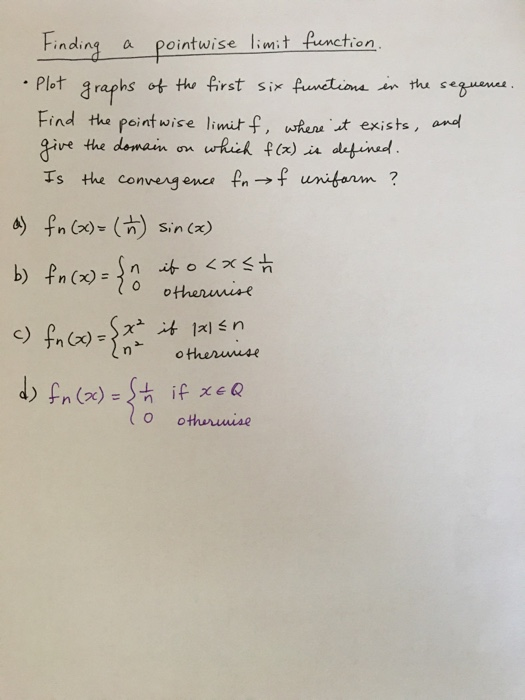 Finding a pointwise limit function.
• Plot graphs of the first six functions in the sequence.
Find the pointwise limit f, where it exists, and
give the domain on which f(x) is defined.
Is the convergence fn → f uniform ?
a) fn(x) = (1/n) sin(x)
b) fn(x) = { n if 0 < x ≤ 1/n
0 otherwise
c) fn(x) = { x² if |x| ≤ n
n² otherwise
d) fn(x) = { 1/n if x ∈ Q
0 otherwise